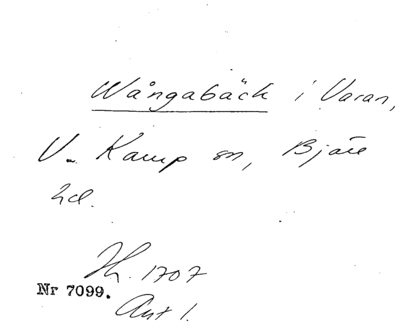 Wångabäck i Varan,
V. Karup sn, Bjäre
hd.
Jh. 1707
Nr 7099.
Ant 1.